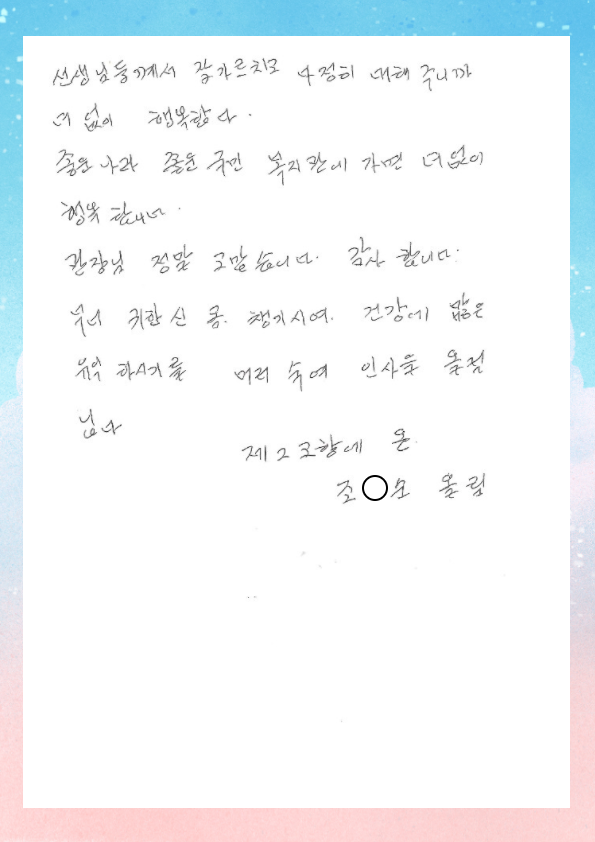 선생님들께서 잘가르치고 다정히 대해 주니까
더 없이 행복합다.
좋은 나라 좋은 국민 복지관에 가면 더없이
행복 합니다.
관장님 정말 고맙습니다. 감사 합니다.
부디 귀한 신 몸. 챙기시여. 건강에 많은
유익 하시기를 머리 숙여 인사를 올림
님다
제2고향에 온.
조○순 올림